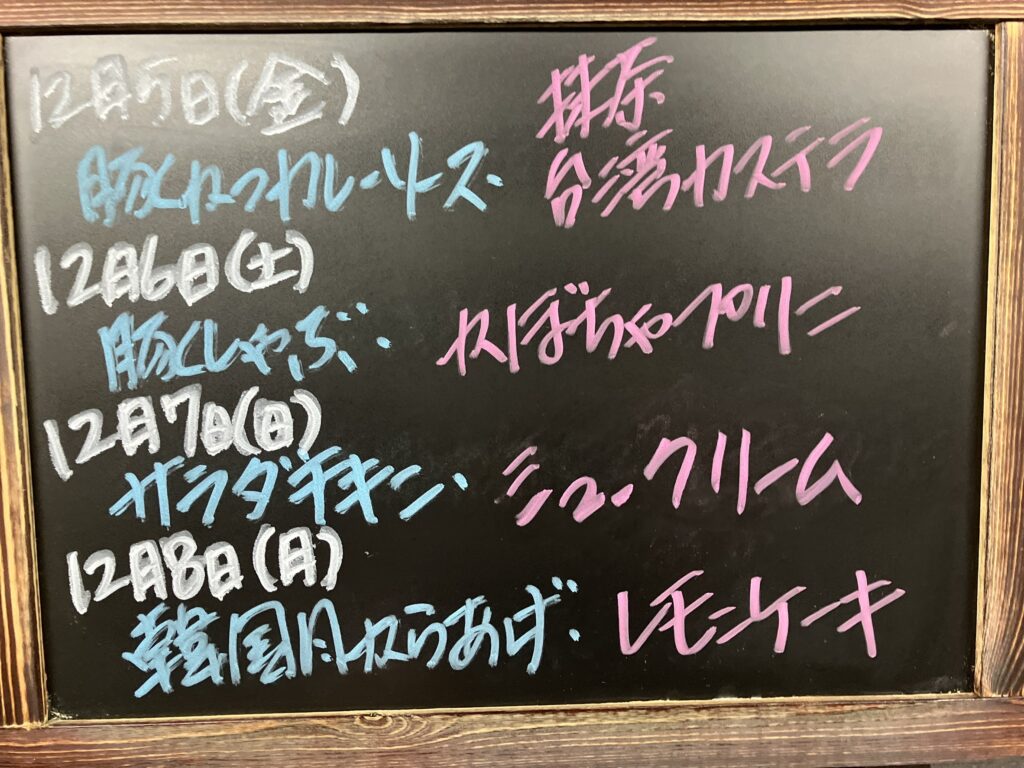 12月5日(金) 抹茶
豚かつカレーソース 台湾カステラ
12月6日(土)
豚しゃぶ かぼちゃプリン
12月7日(日)
サラダチキン シュークリーム
12月8日(月)
韓国風からあげ レモンケーキ